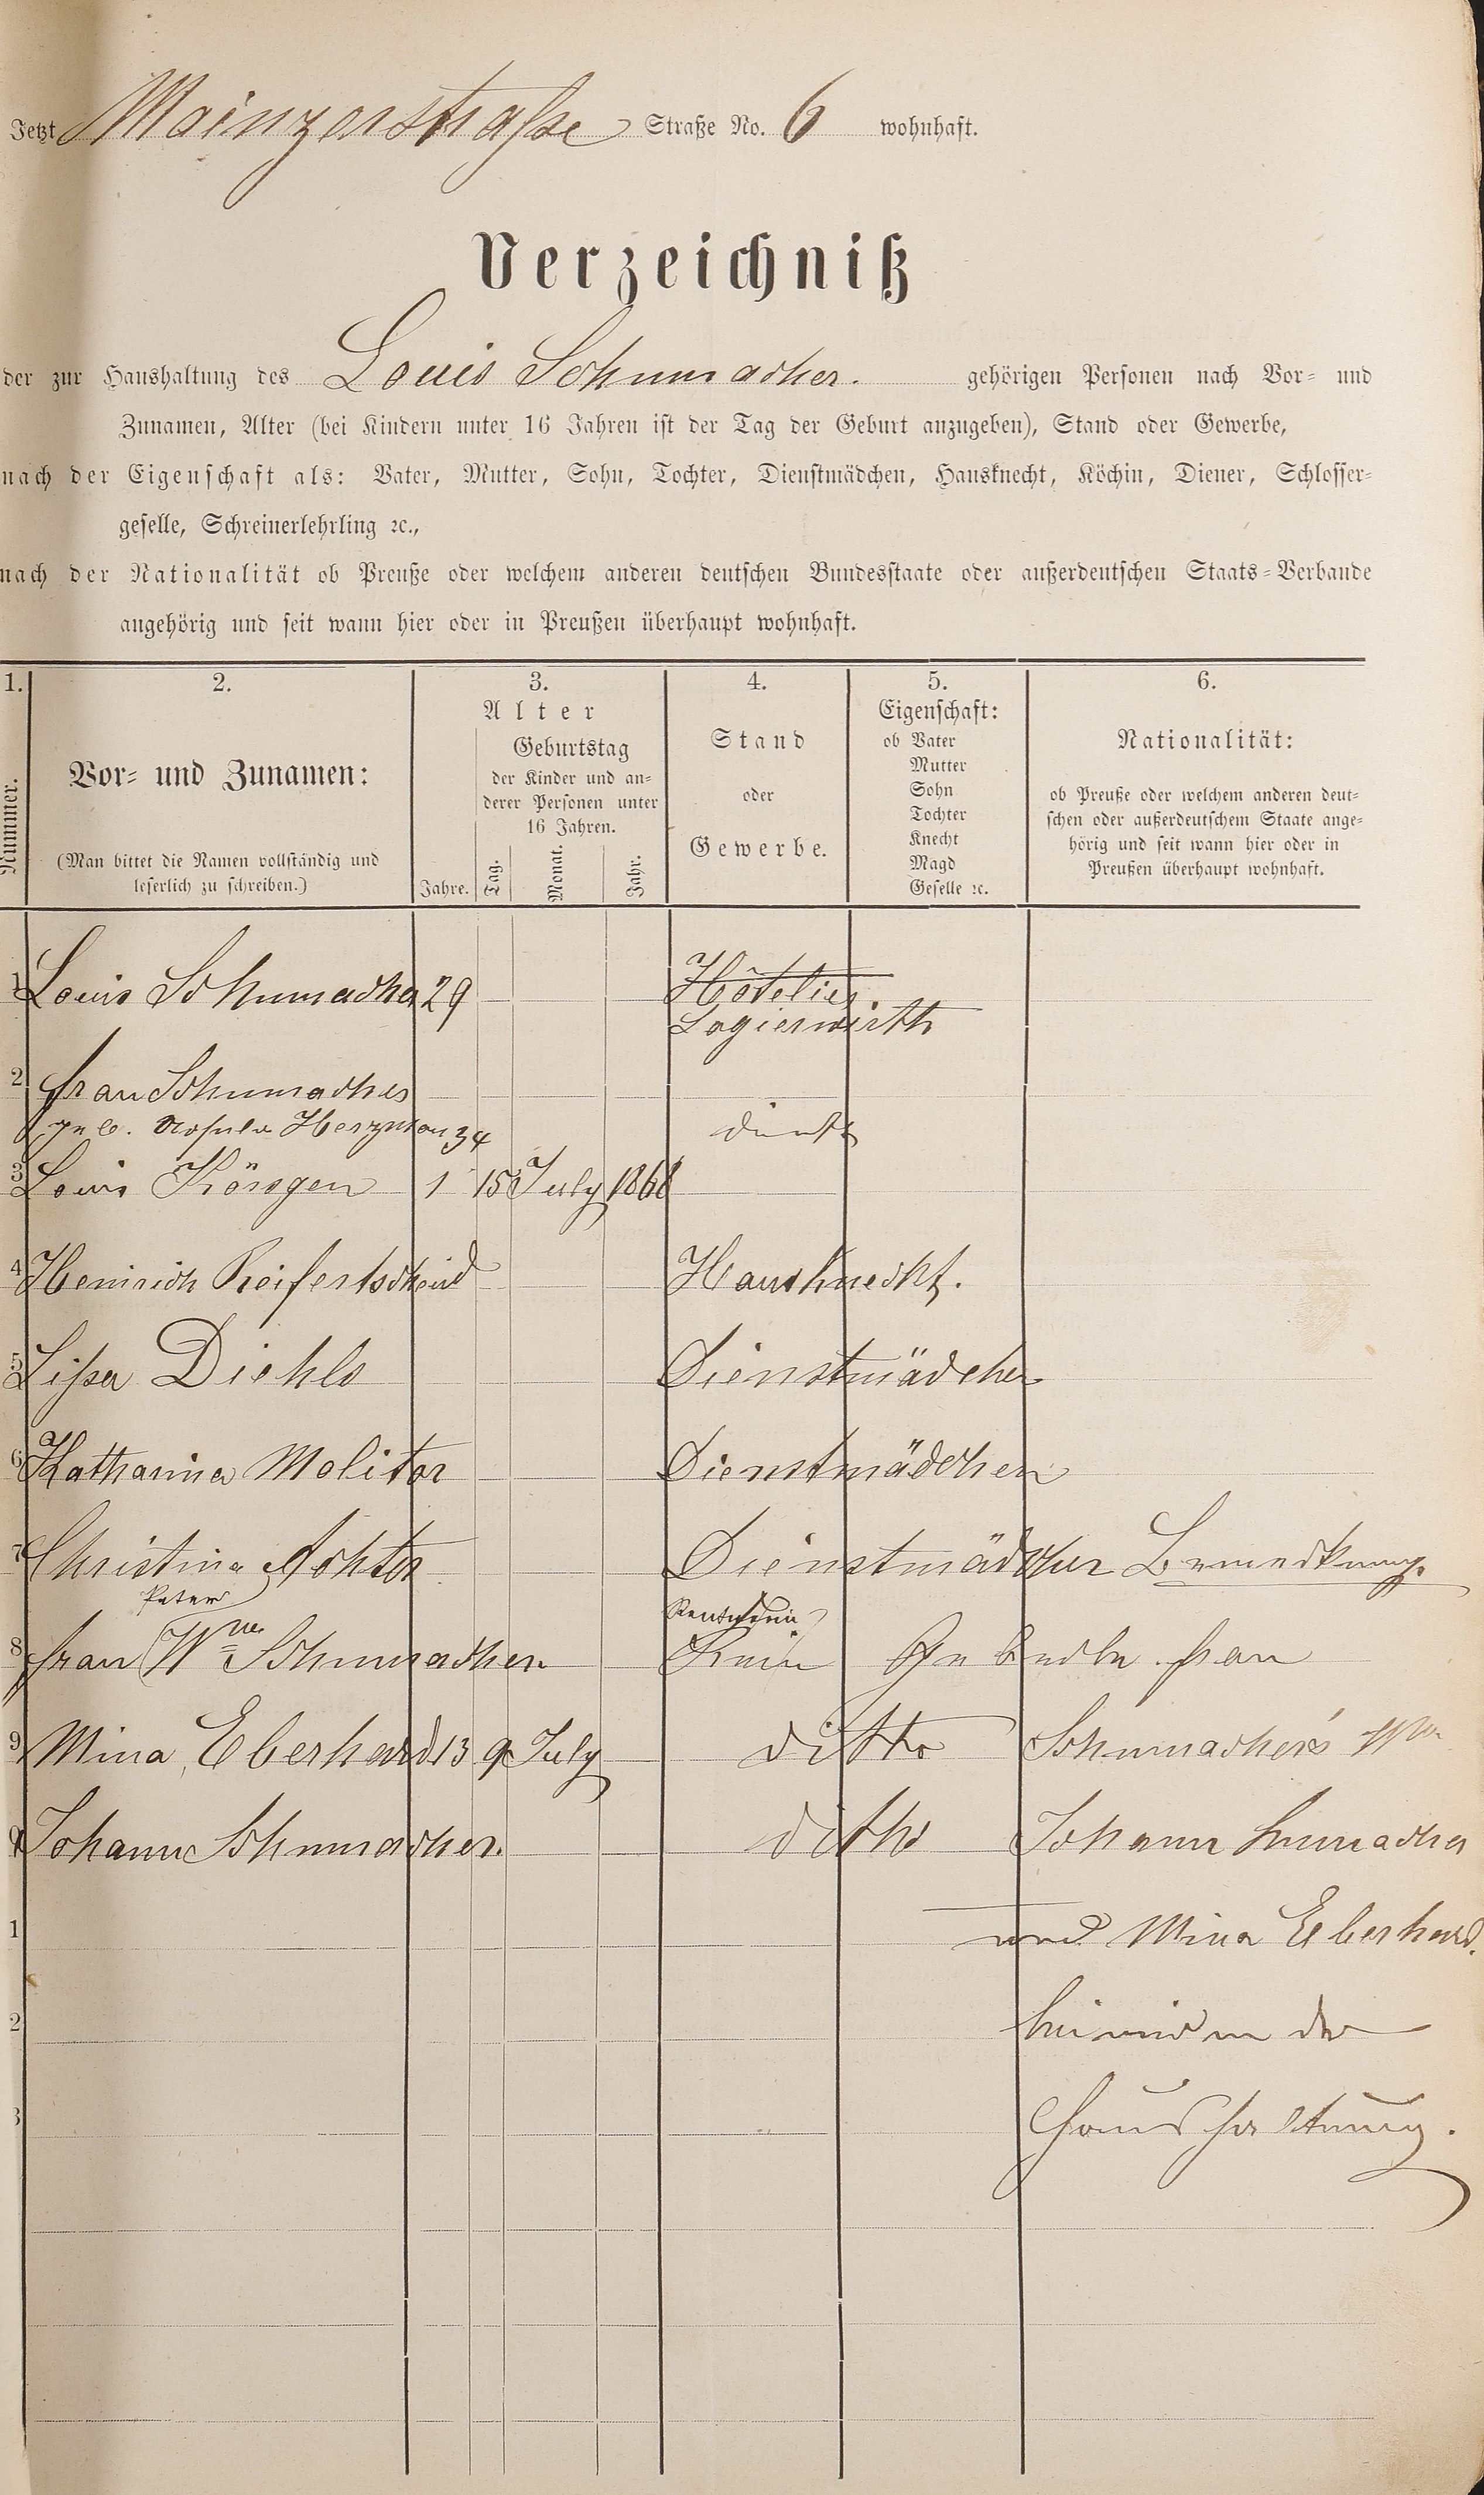 Jetzt Mainzerstraße Straße No. 6 wohnhaft.
Verzeichniß
der zur Haushaltung des Louis Schumacher. gehörigen Personen nach Vor- und
Zunamen, Alter (bei Kindern unter 16 Jahren ist der Tag der Geburt anzugeben), Stand oder Gewerbe,
nach der Eigenschaft als: Vater, Mutter, Sohn, Tochter, Dienstmädchen, Hausknecht, Köchin, Diener, Schlosser-
geselle, Schreinerlehrling ꝛc.,
nach der Nationalität ob Preuße oder welchem anderen deutschen Bundesstaate oder außerdeutschen Staats-Verbande
angehörig und seit wann hier oder in Preußen überhaupt wohnhaft.
1. 2. 3. 4. 5. 6.
Nummer.
Vor- und Zunamen:
(Man bittet die Namen vollständig und
leserlich zu schreiben.)
Alter
Geburtstag
der Kinder und an-
derer Personen unter
16 Jahren.
Jahre. Tag. Monat. Jahr.
Stand
oder
Gewerbe.
Eigenschaft:
ob Vater
Mutter
Sohn
Tochter
Knecht
Magd
Geselle ꝛc.
Nationalität:
ob Preuße oder welchem anderen deut-
schen oder außerdeutschem Staate ange-
hörig und seit wann hier oder in
Preußen überhaupt wohnhaft.
1 Louis Schumacher 29 Hôtelier
Logierwirth
2 frau Schumacher
geb. 34
3 Louis Körsgen 1 15 July 1868
4 Heinrich Reifertscheid Hausknecht.
5 Lißa Diehls Dienstmädchen
6 Katharina Molitor Dienstmädchen
7 Christina Achter Dienstmädchen Bemerkung.
Peter Rentnerin
8 frau Wwe Schumacher Kein frau
9 Mina Eberhard 13 9 July ditto Schumacher's Wwe
Johann Schumacher. ditto Johann Schumacher
1 und Mina Eberhard.
2 der
3 Haushaltung.